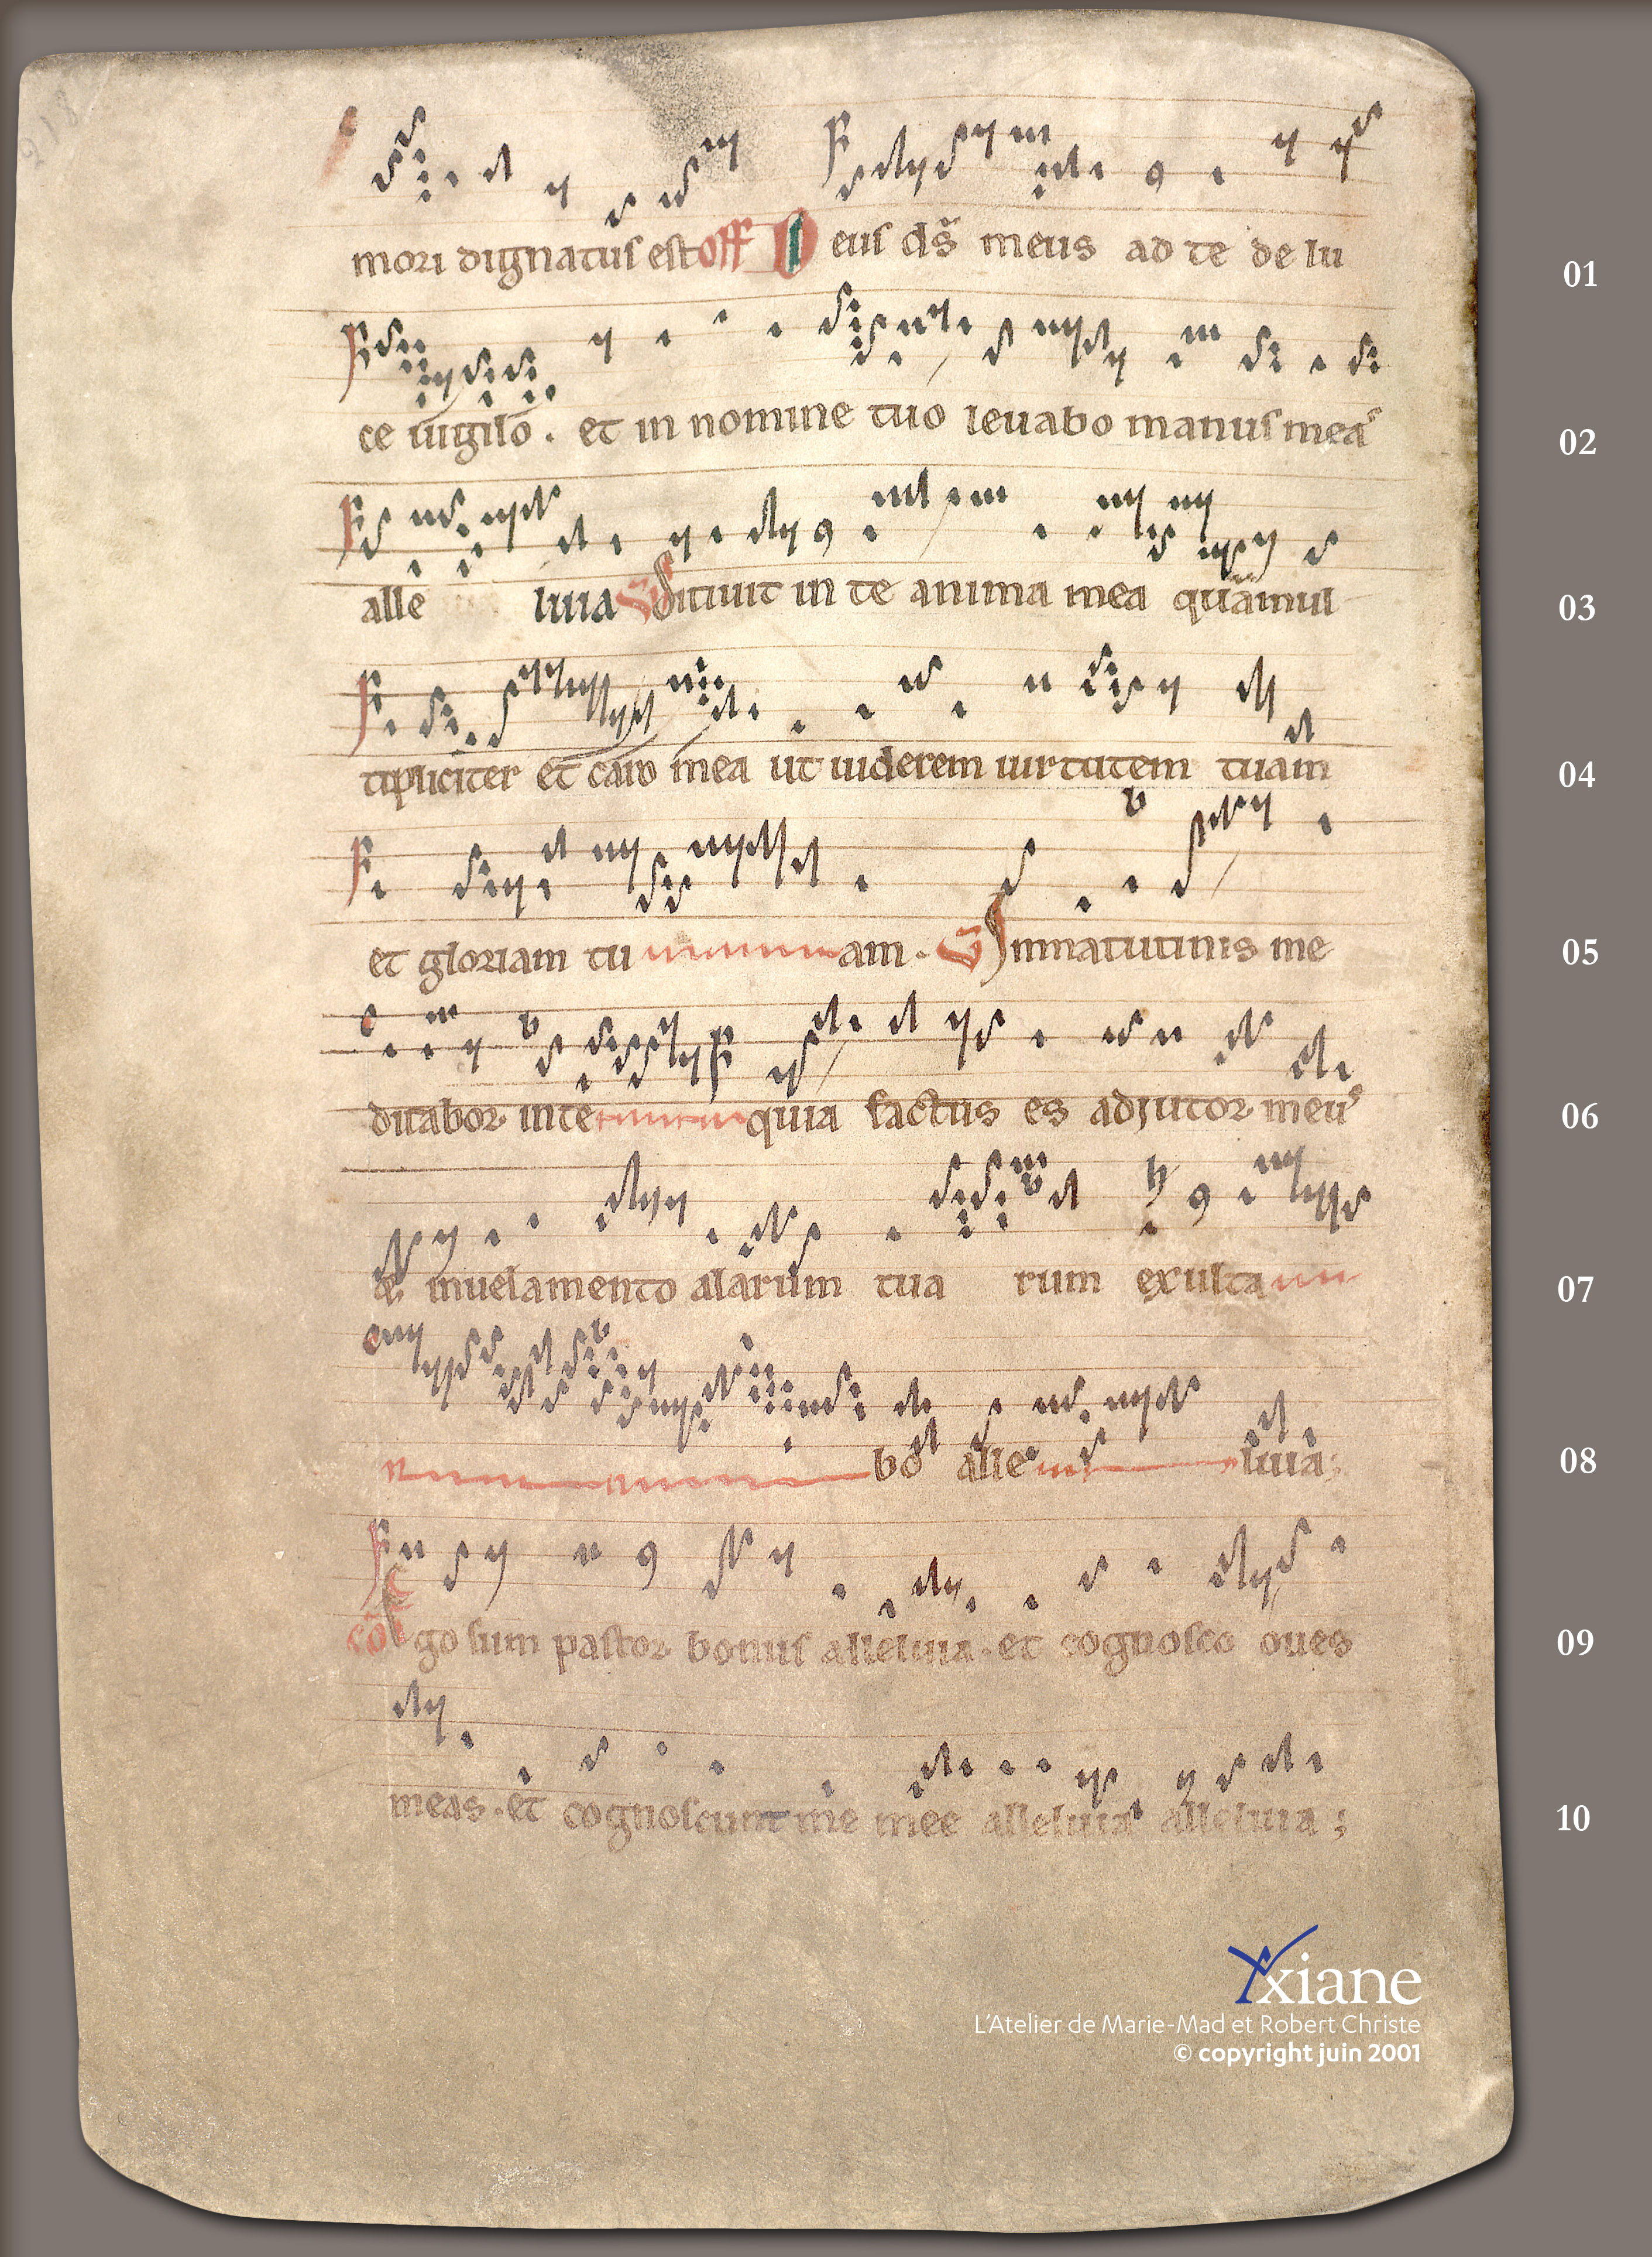 mori dignatus est off Deus ds meus ad te de lu 01
ce uigilo . et in nomine tuo leuabo manus meas 02
alle luia Sitiuit in te anima mea quam mul 03
tipliciter et caro mea ut uiderem uirtutem tuam 04
et gloriam tu am . In matutinis me 05
ditabor in te quia factus es adjutor meus 06
& in uelamento alarum tua rum exulta 07
bo alle luia ; 08
co Ego sum pastor bonus alleluia . et cognosco oues 09
meas . et cognoscunt me mee alleluia alleluia ; 10
Yxiane
L'Atelier de Marie-Mad et Robert Christe
© copyright juin 2001